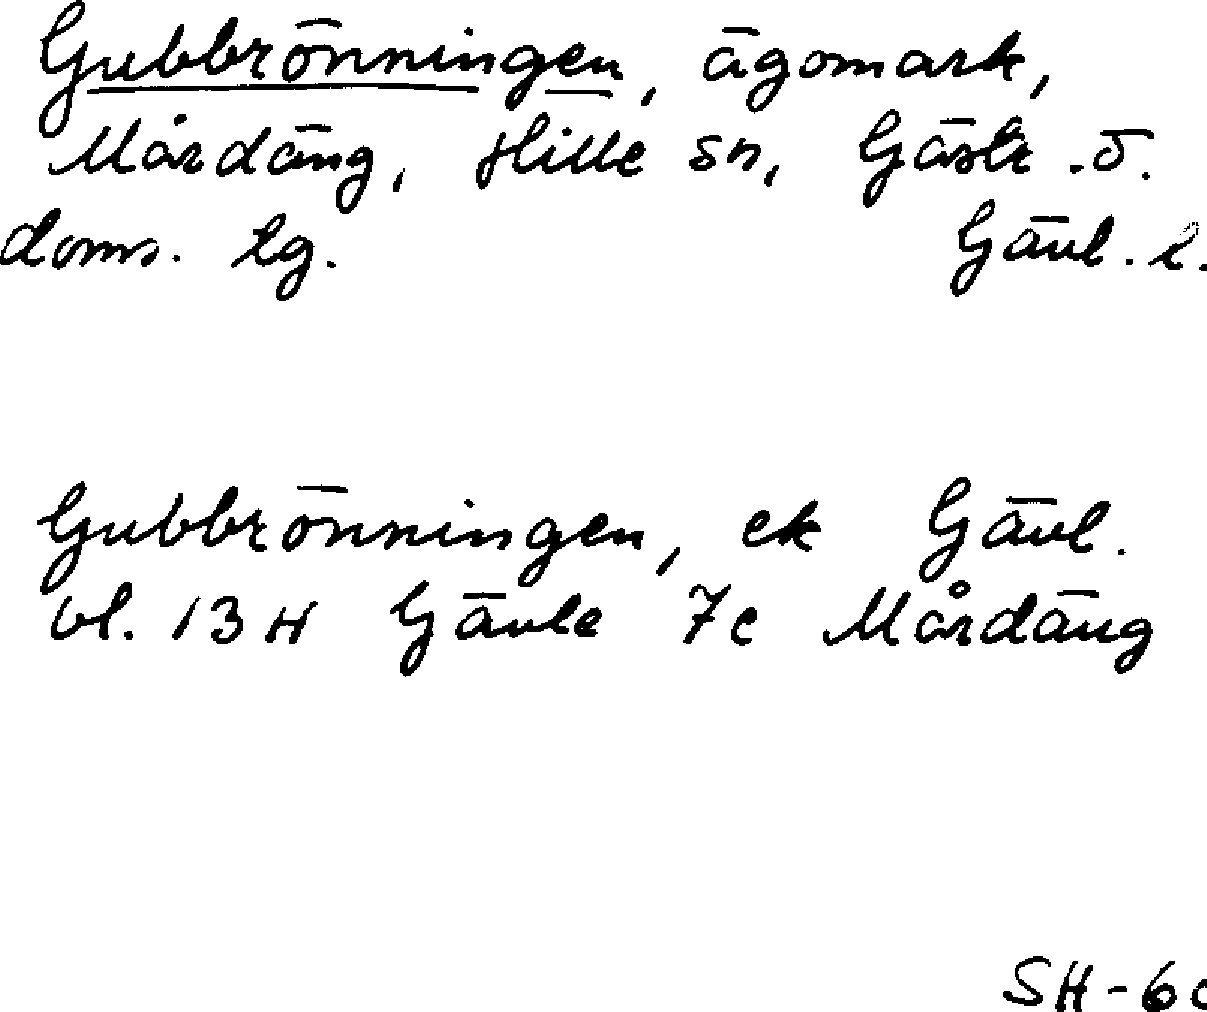 Gubbrönningen, ägomark,
Mårdäng, Hille sn, Gästr. ö.
doms. tg. Gävl. l.
Gubbrönningen, ek Gävl.
bl. 13H Gävle 7c Mårdäng
SH-60